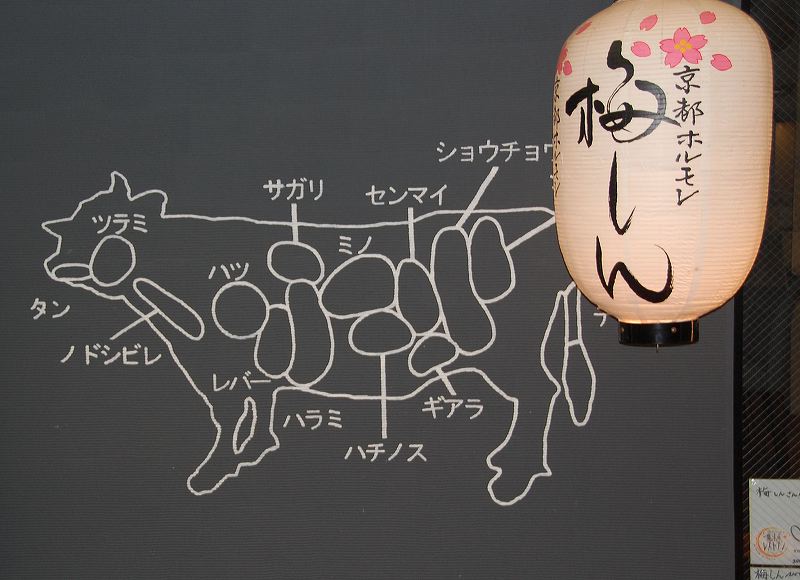 京都ホルモン
梅しん
ショウチョウ
サガリ
センマイ
ツラミ
ミノ
ハツ
タン
ノドシビレ
レバー
ハラミ
ギアラ
ハチノス
梅しん